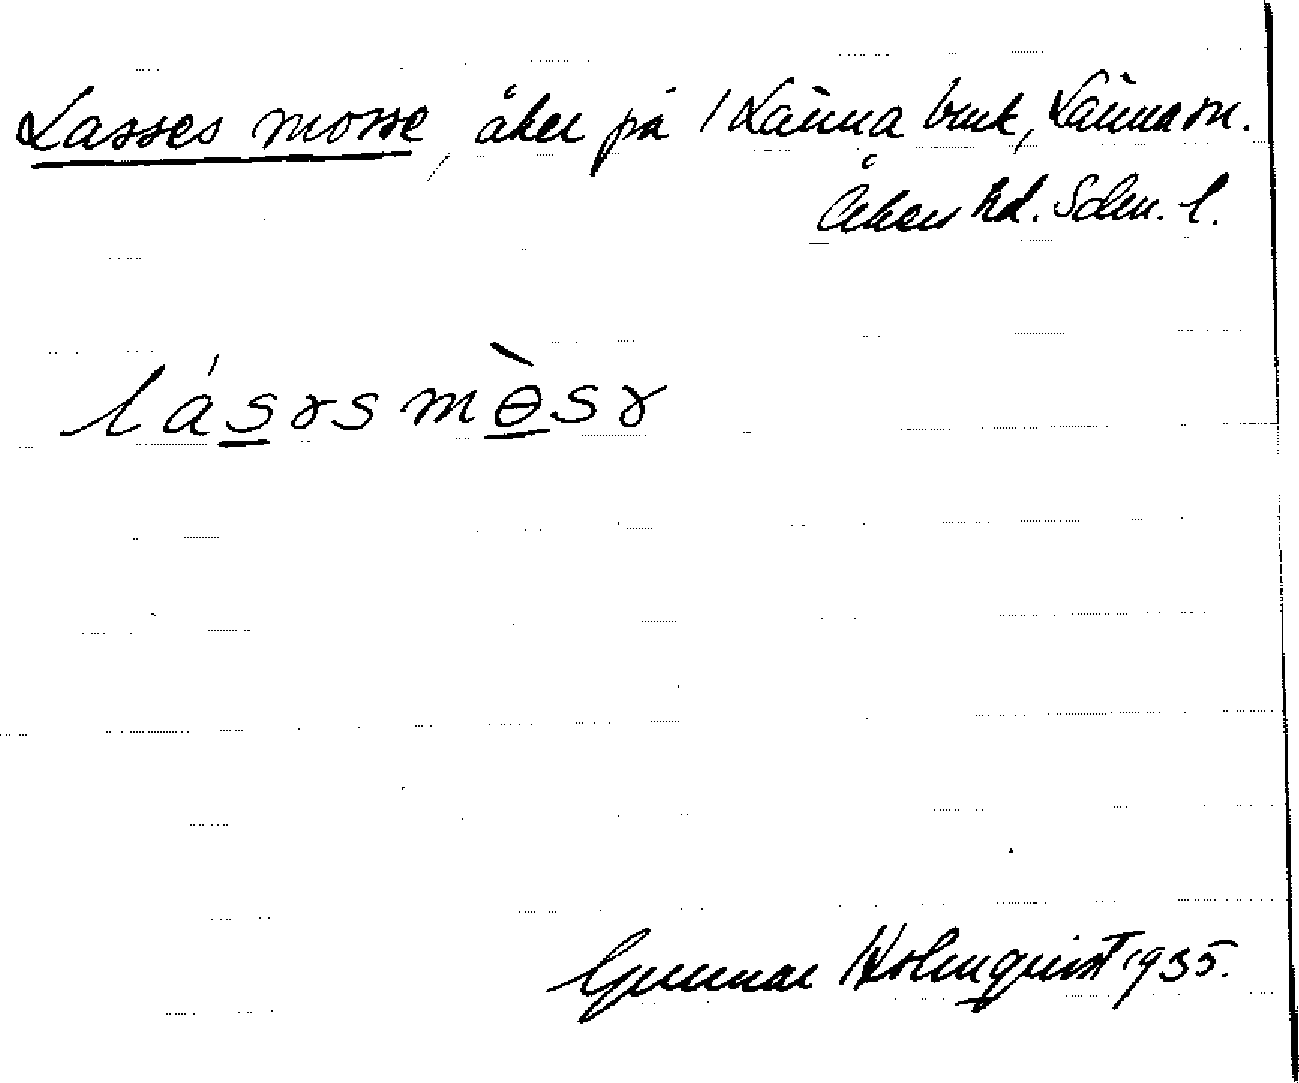 Lasses mosse, åker på 1 Länna bruk, Länna sn.
Åkers hd. Söeml. l.
lásɤsmɵ̀sɤ
Gunnar Holmquist 1935.